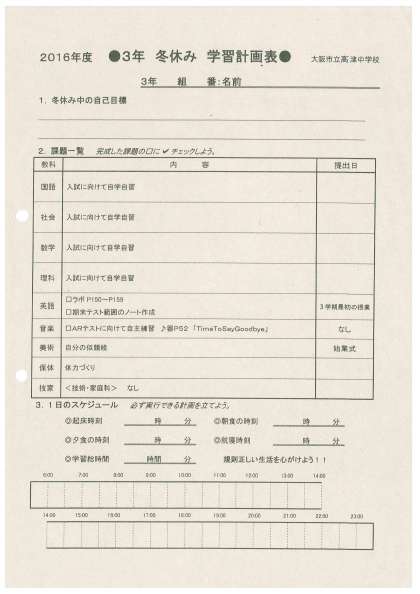 2016年度 ●3年 冬休み 学習計画表● 大阪市立高津中学校
3年 組 番:名前
1. 冬休み中の自己目標
2. 課題一覧 完成した課題の□に✔チェックしよう。
教科 内 容 提出日
国語 入試に向けて自学自習
社会 入試に向けて自学自習
数学 入試に向けて自学自習
理科 入試に向けて自学自習
英語 □ラボ P150～P159
□期末テスト範囲のノート作成 3学期最初の授業
音楽 □ARテストに向けて自主練習 ♪器P52 「TimeToSayGoodbye」 なし
美術 自分の似顔絵 始業式
保体 体力づくり
技家 <技術・家庭科> なし
3. 1日のスケジュール 必ず実行できる計画を立てよう。
◎起床時刻 時 分 ◎朝食の時刻 時 分
◎夕食の時刻 時 分 ◎就寝時刻 時 分
◎学習総時間 時間 分 規則正しい生活を心がけよう!!
6:00 7:00 8:00 9:00 10:00 11:00 12:00 13:00 14:00
14:00 15:00 16:00 17:00 18:00 19:00 20:00 21:00 22:00 23:00